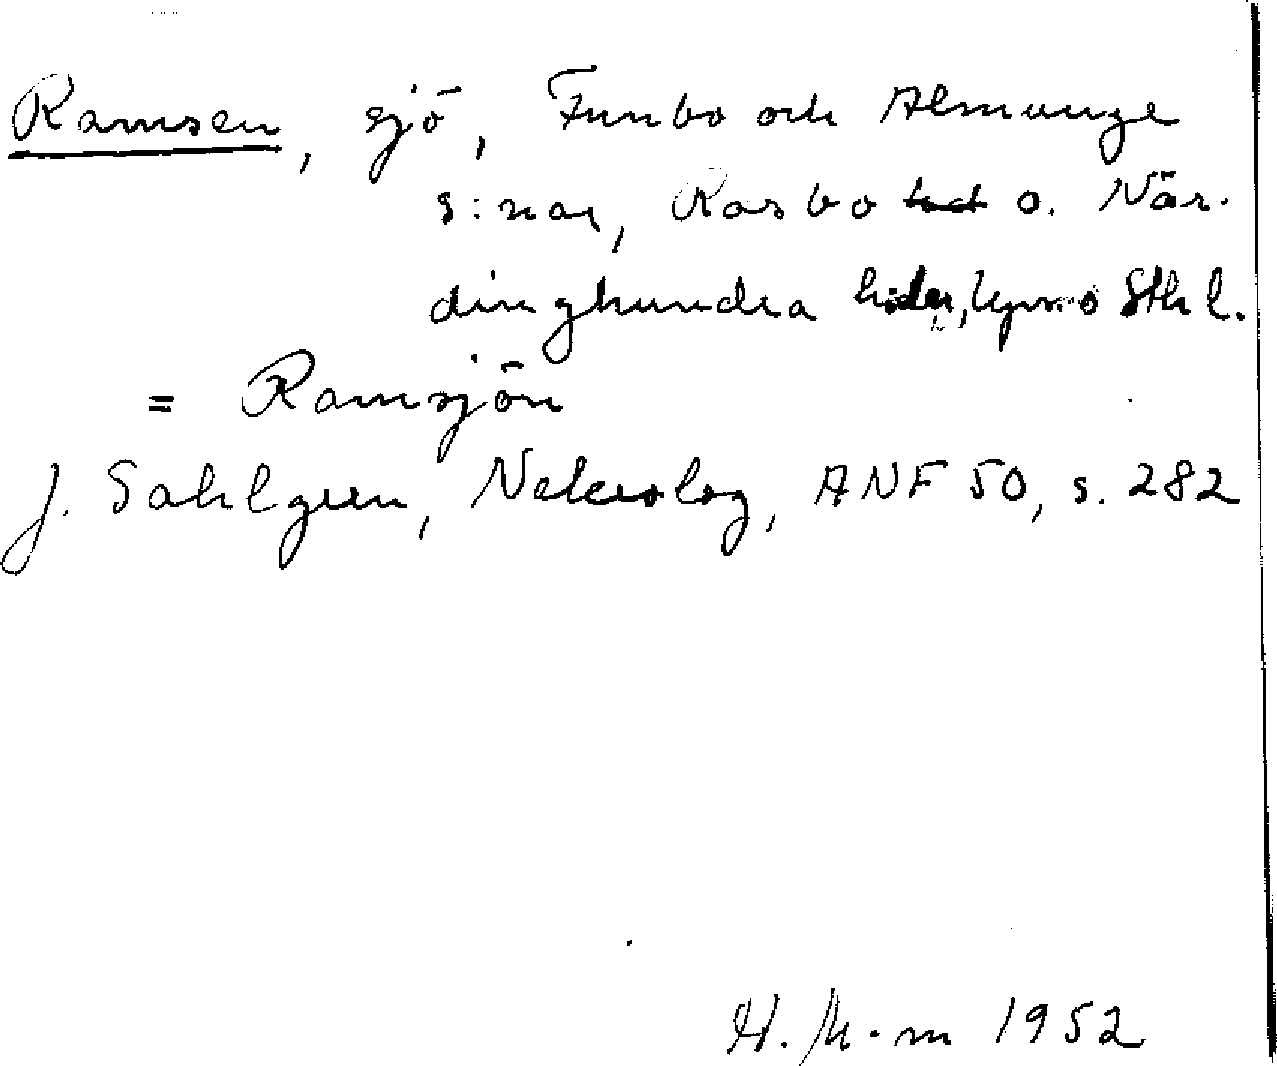 Ramsen, sjö, Funbo och Almunge
s:nar, Rasbo o. När-
dinghundra hder, Sthl.
= Ramsjön
J. Sahlgren, Nekrolog, ANF 50, s. 282
1952